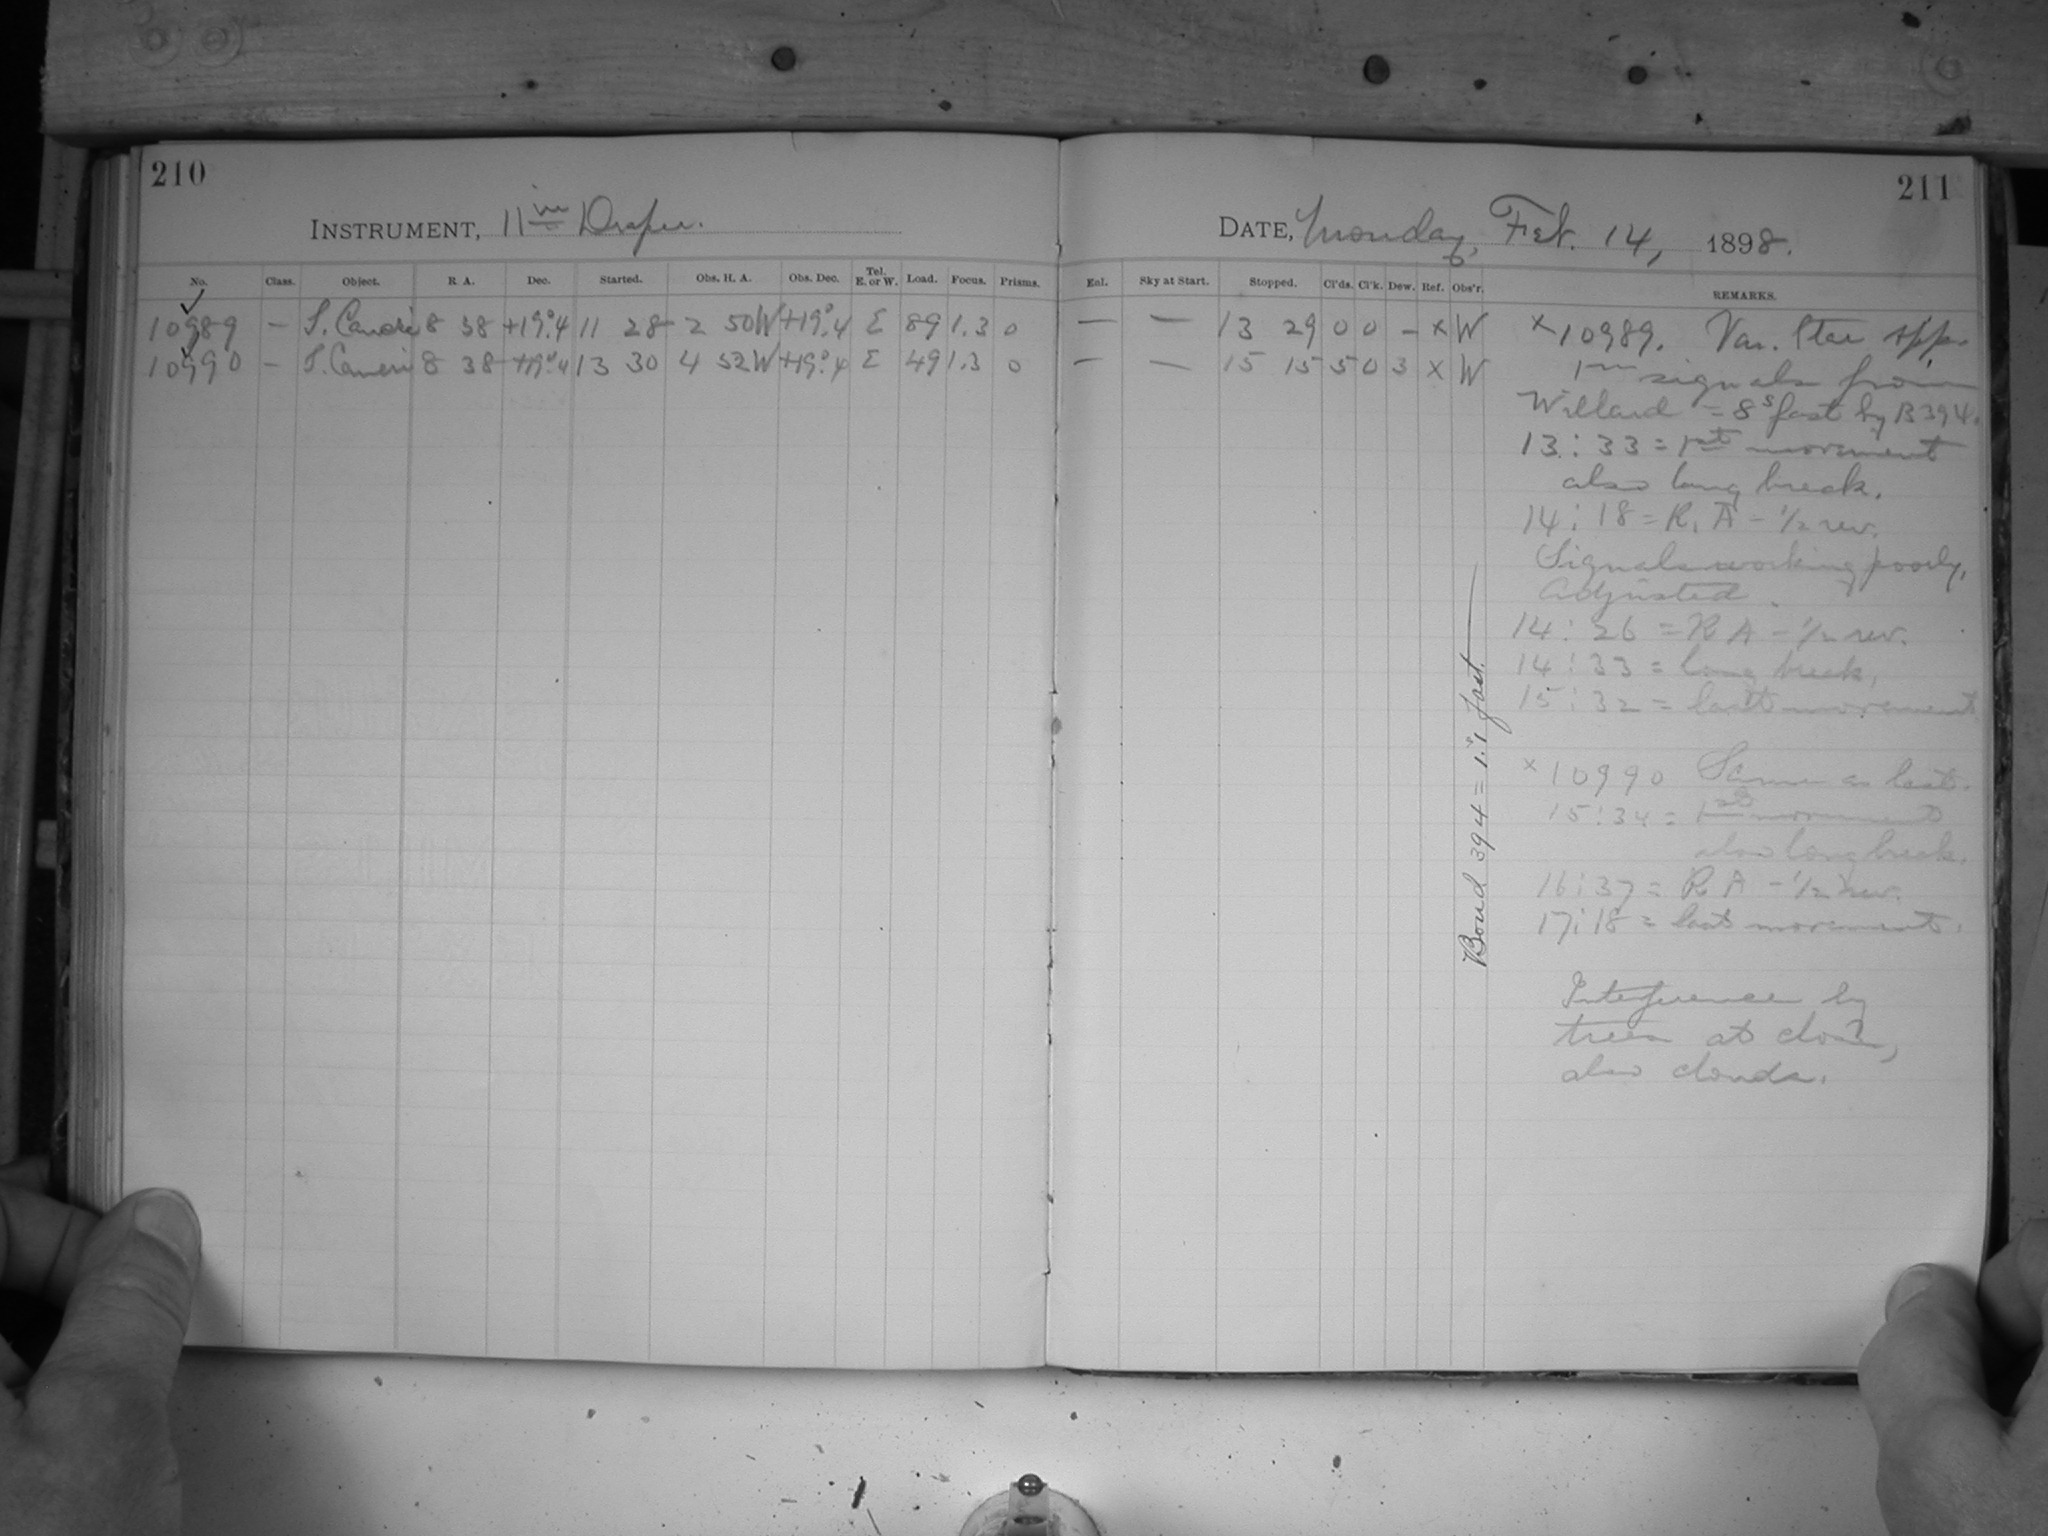 210
INSTRUMENT, 11 in Draper.
No. Class. Object. R A. Dec. Started. Obs. H. A. Obs. Dec. Tel. E. or W. Load. Focus. Prisms.
10989 – S. Cancri 8 38 +19°.4 11 28 2 50W +19°.4 E 89 1.3 0
10990 – S. Cancri 8 38 +19°.4 13 30 4 52W +19°.4 E 49 1.3 0
211
DATE, Monday, Feb. 14, 1898.
Enl. Sky at Start. Stopped. Cl'ds. Cl'k. Dew. Ref. Obs'r. REMARKS.
— — 13 29 0 0 – x W
— — 15 15 5 0 3 x W
x 10989. Var. Star app.
1m signals from
Willard = 8s fast by B 394.
13:33 = 1st movement
also long break.
14:18 = R. A – 1/2 rev.
Signals working poorly,
Adjusted.
14:26 = R A – 1/2 rev.
14:33 = long break,
15:32 = last movement
x 10990 Same as last.
15:34 = 1st movement
also long break.
16:37 = R A – 1/2 rev.
17:18 = last movement.
Interference by
trees at close,
also clouds.
Bond 394 = 1s.1 fast.